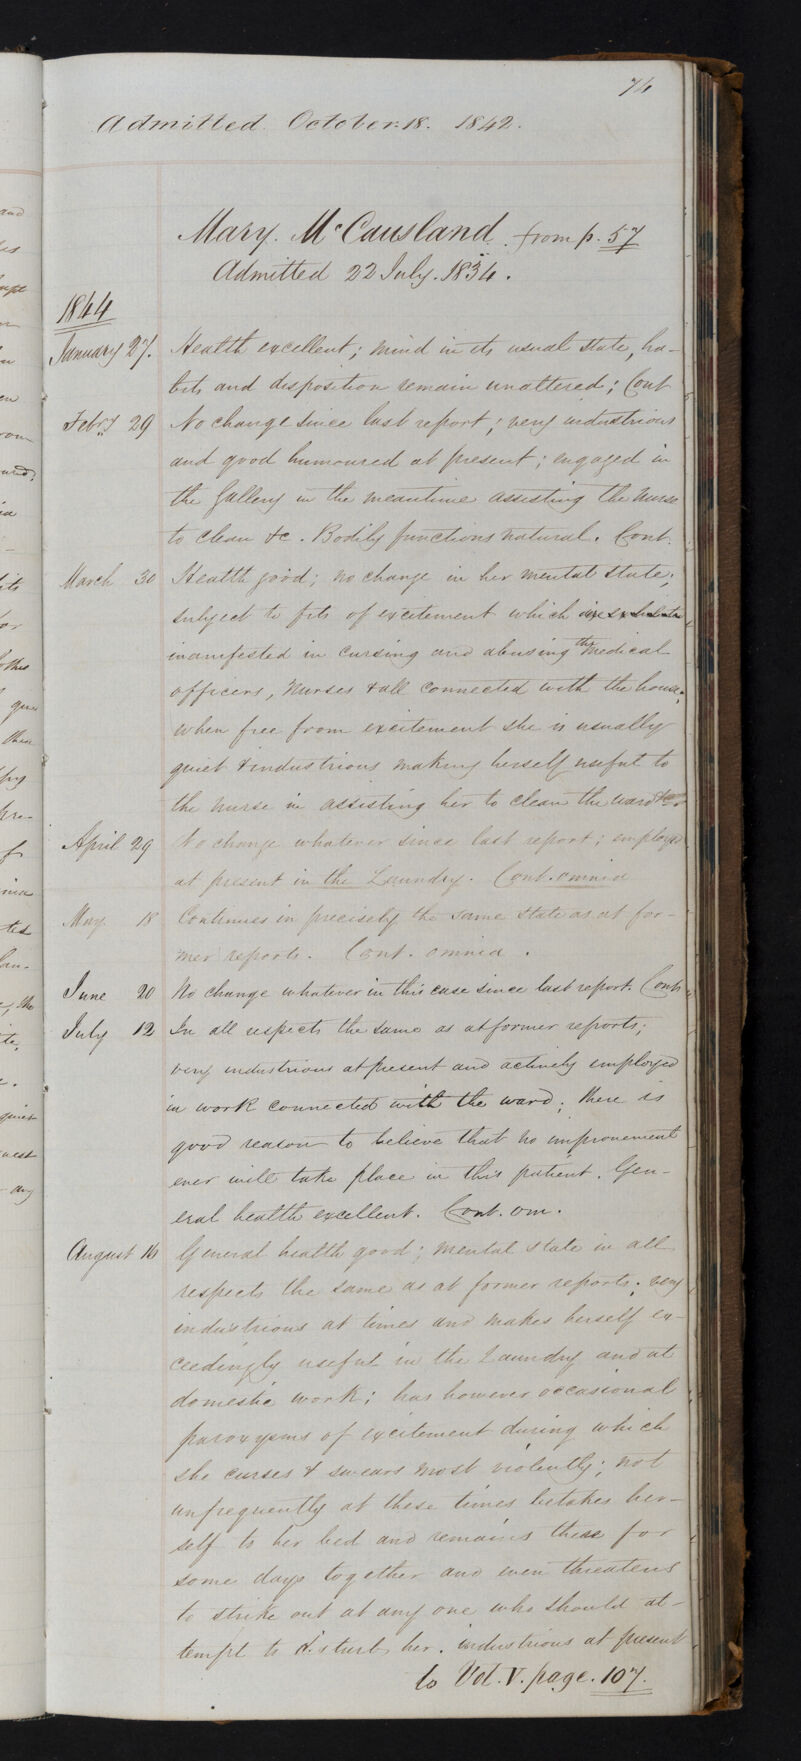 76
Admitted October. 18. 1842.
Mary. McCausland. from p. 57
Admitted 22 July. 1834.
1844
January 27. Health excellent; mind in its usual state, ha-
bits and disposition remain unaltered; Cont
Febry 29 No change since last report; very industrious
and good humoured at present; engaged in
the Gallery in the meantime assisting the nurse
to clean &c. Bodily functions natural. Cont.
March 30 Health good; no change in her mental state;
subject to fits of excitement which
manifested in cursing and abusing the medical
officers, nurses & all connected with the house;
when free from excitement she is usually
quiet & industrious making herself useful to
the nurse in assisting her to clean the ward &c.
April 29 No change whatever since last report; employed
at present in the Laundry. Cont. omnia
May 18 Continues in precisely the same state as at for-
mer reports. Cont. omnia.
June 20 No change whatever in this case since last report. Cont
July 12 In all respects the same as at former reports;
very industrious at present and actively employed
in work connected with the ward; there is
good reason to believe that no improvement
ever will take place in this patient. Gen-
eral health excellent. Cont. om.
August 16 General health good; mental state in all
respects the same as at former reports; very
industrious at times and makes herself ex-
ceedingly useful in the Laundry and at
domestic work; has however occasional
paroxysms of excitement during which
she curses & swears most violently; not
unfrequently at these times betakes her-
self to her bed and remains there for
some days together and even threatens
to strike out at any one who should at-
tempt to disturb her. industrious at present
to Vol. V. page. 107.